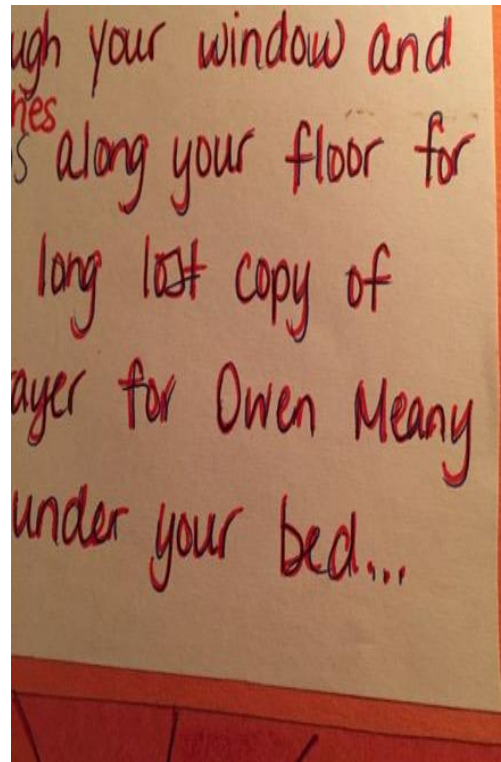 ugh your window and
hes
s along your floor for
long lost copy of
ayer for Owen Meany
under your bed...